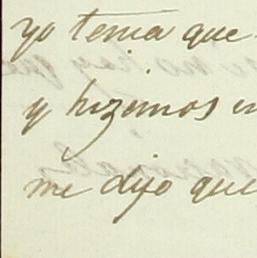 yo tenia que
y hizimos
me dijo que